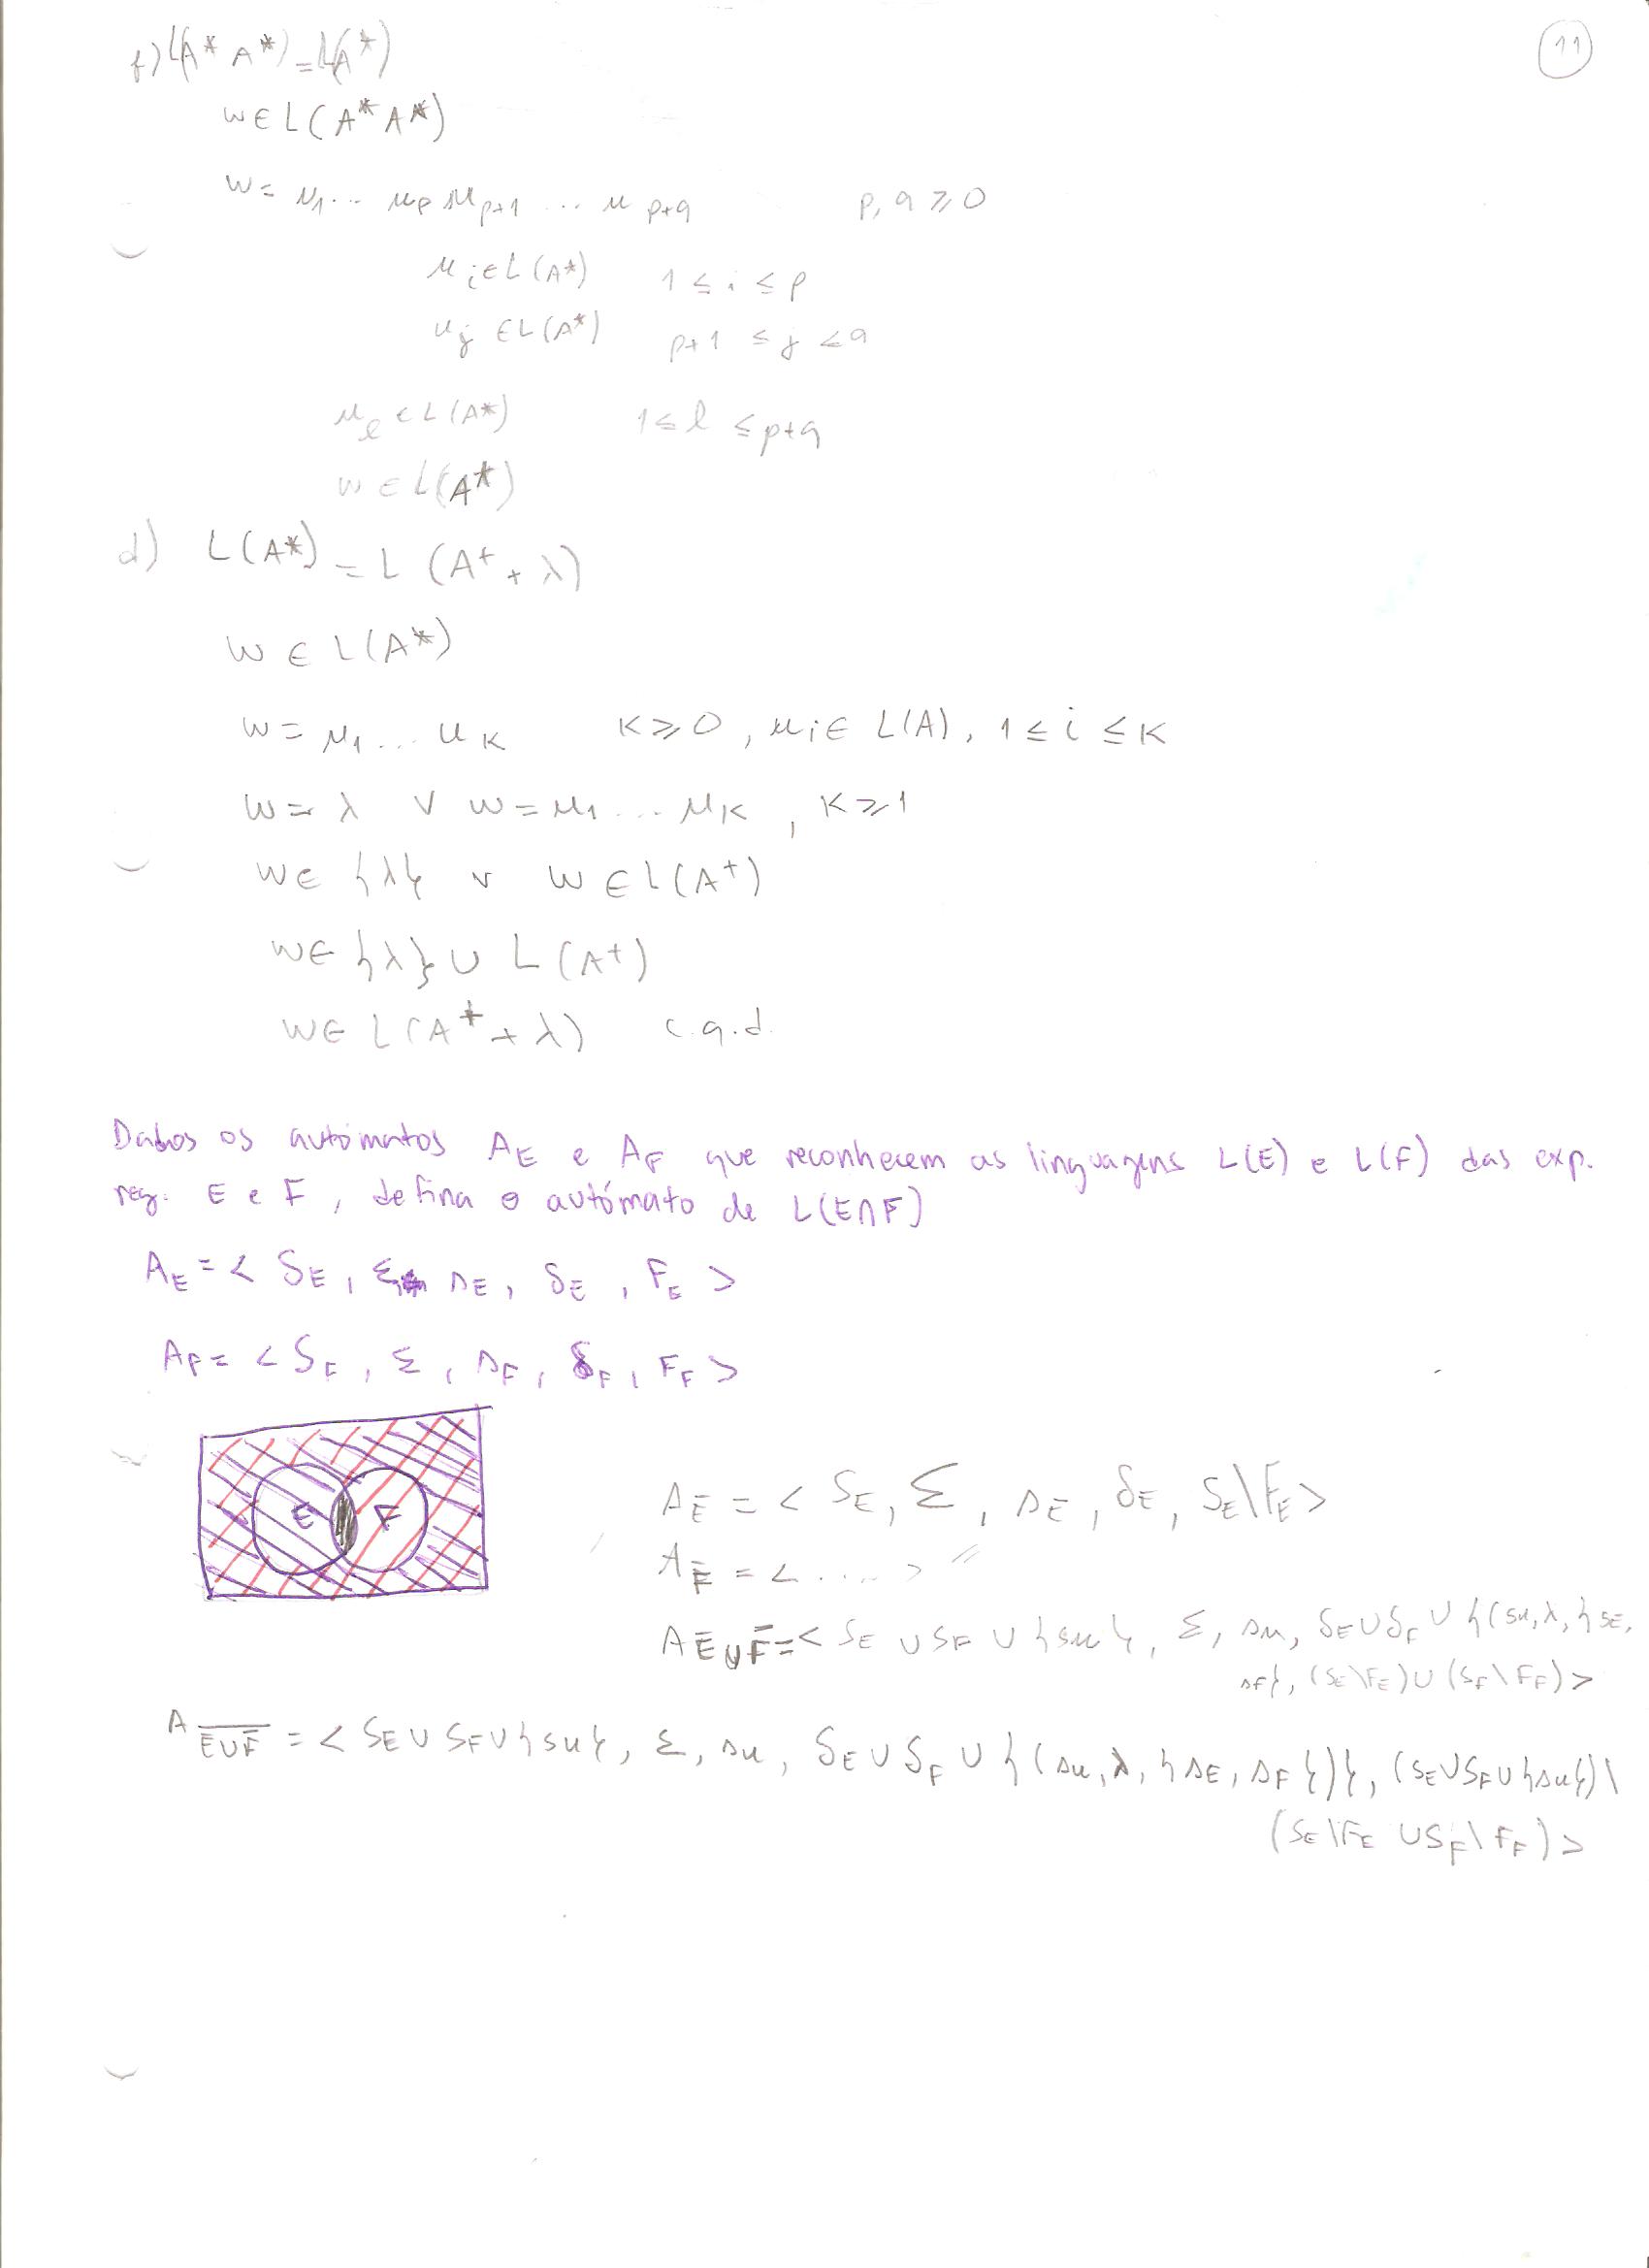 11
f) L(A* A*) = L(A*)
w ∈ L(A* A*)
w = u₁ ... uₚ uₚ₊₁ ... uₚ₊q p, q ⩾ 0
uᵢ ∈ L(A*) 1 ≤ i ≤ p
uⱼ ∈ L(A*) p+1 ≤ j < q
u_l ∈ L(A*) 1 ≤ l ≤ p+q
w ∈ L(A*)
d) L(A*) = L(A⁺ + λ)
w ∈ L(A*)
w = u₁ ... u_K K ⩾ 0, uᵢ ∈ L(A), 1 ≤ i ≤ K
w = λ ∨ w = u₁ ... u_K, K ⩾ 1
w ∈ {λ} ∨ w ∈ L(A⁺)
w ∈ {λ} ∪ L(A⁺)
w ∈ L(A⁺ + λ) c.q.d.
Dados os autómatos A_E e A_F que reconhecem as linguagens L(E) e L(F) das exp.
reg. E e F, defina o autómato de L(E∩F)
A_E = < S_E, Σ, s_E, δ_E, F_E >
A_F = < S_F, Σ, s_F, δ_F, F_F >
E F
A_Ē = < S_E, Σ, s_E, δ_E, S_E\F_E >
A_F̄ = < .... >
A_Ē∪F̄ = < S_E ∪ S_F ∪ {su}, Σ, su, δ_E ∪ δ_F ∪ {(su, λ, {s_E,
s_F}, (S_E\F_E) ∪ (S_F\F_F) >
A_‾Ē∪F̄‾ = < S_E ∪ S_F ∪ {su}, Σ, su, δ_E ∪ δ_F ∪ {(su, λ, {s_E, s_F})}, (S_E ∪ S_F ∪ {su}) \
(S_E\F_E ∪ S_F\F_F) >